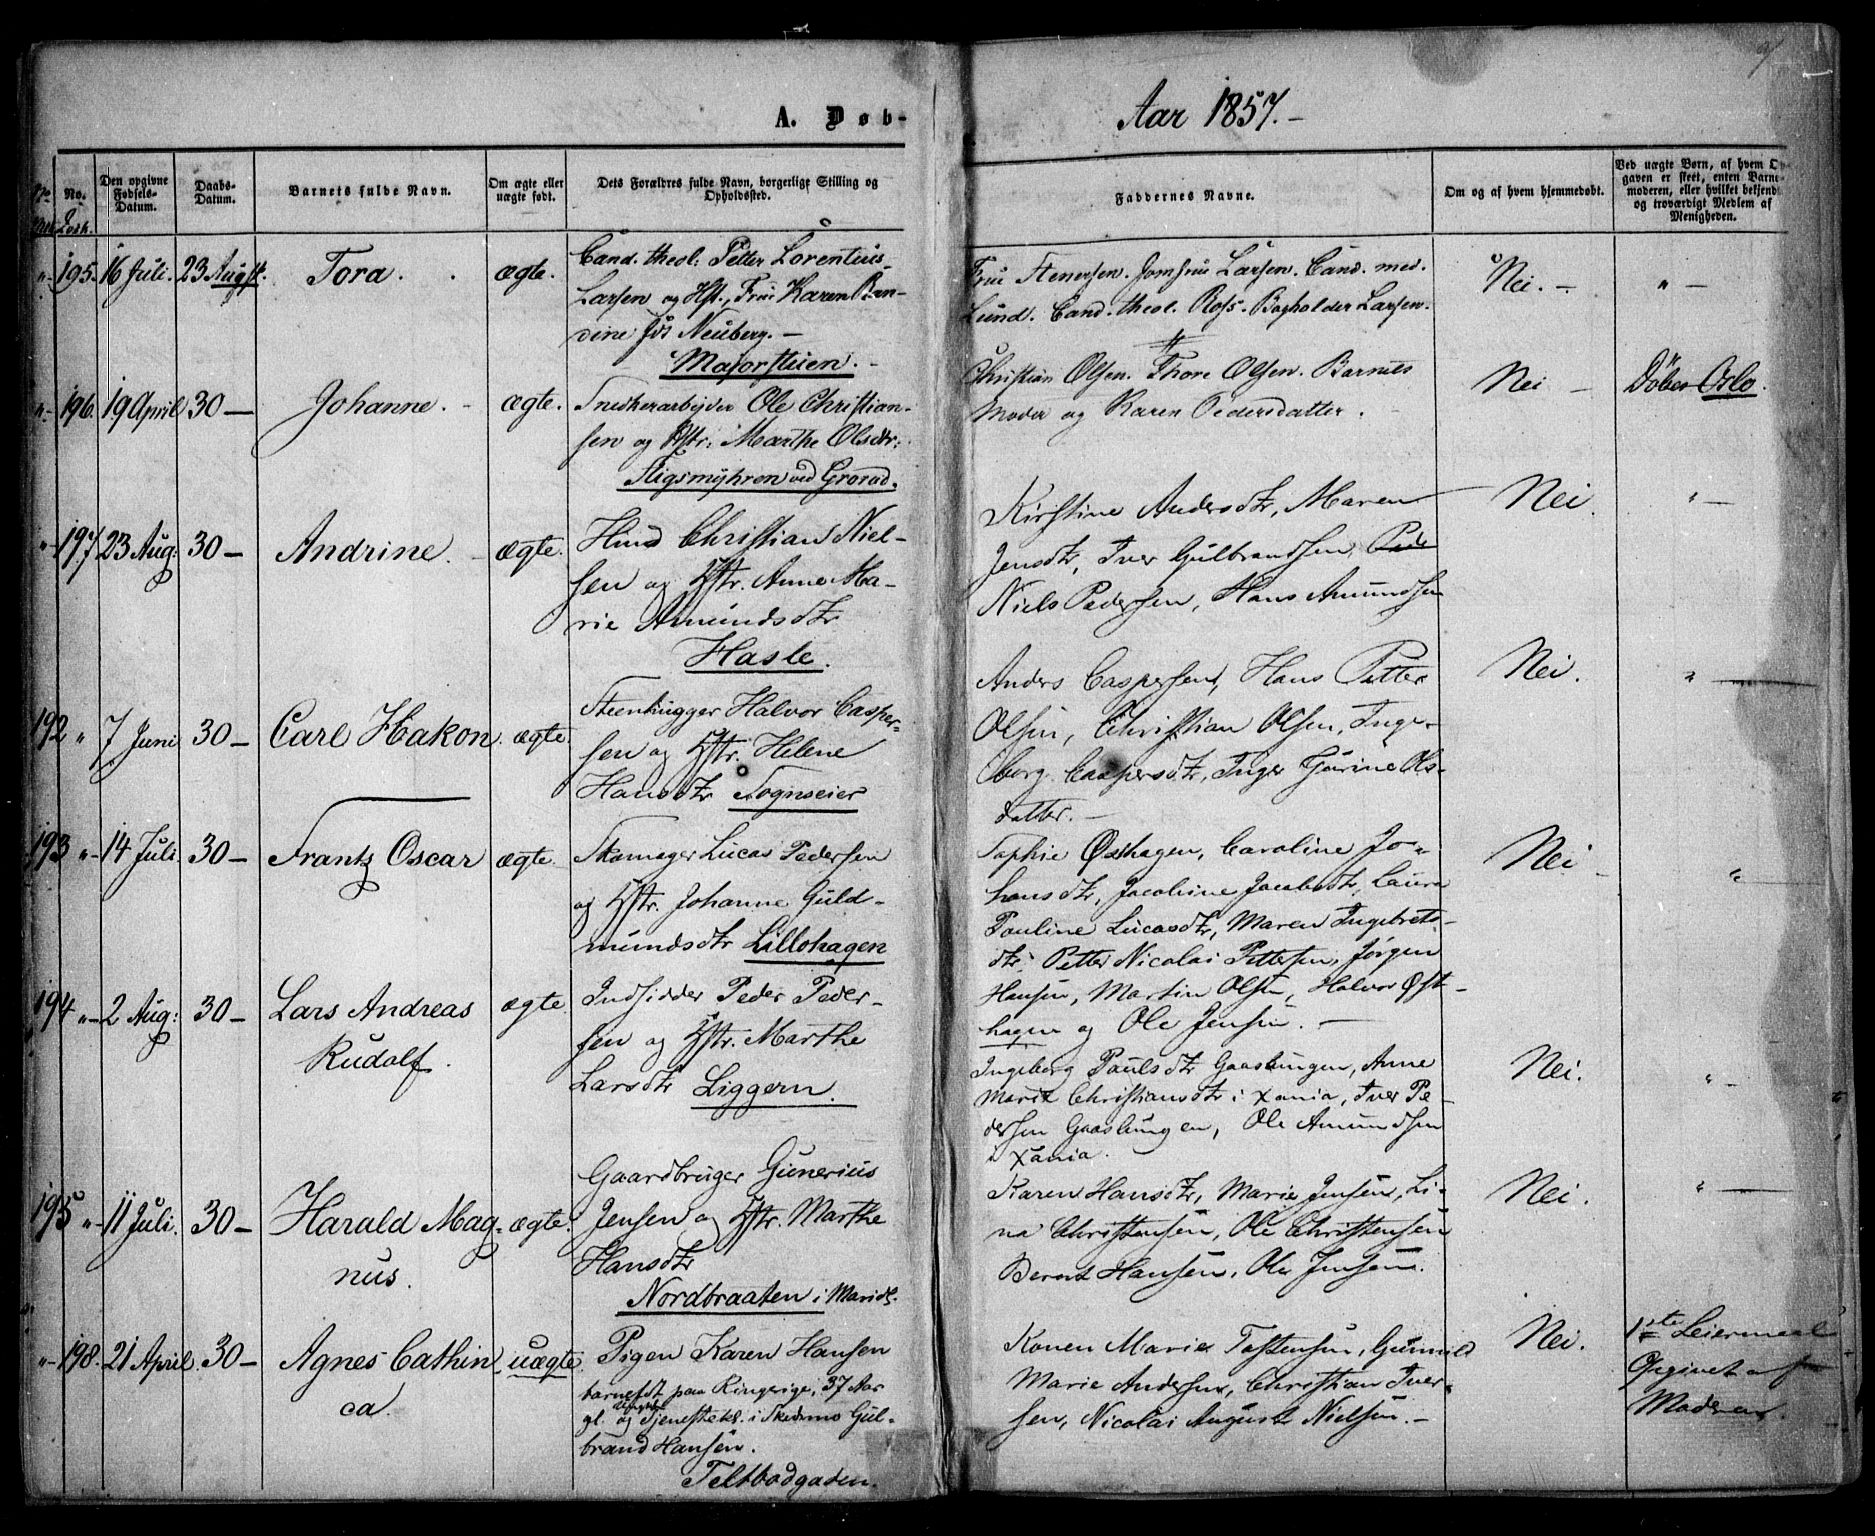 A. Døb-
Aar 1857.-
No.
Den opgivne Fødsels-Datum.
Daabs-Datum.
Barnets fulde Navn.
Om ægte eller uægte født.
Dets Forældres fulde Navn, borgerlige Stilling og Opholdssted.
Faddernes Navne.
Om og af hvem hjemmedøbt.
Ved uægte Børn, af hvem Opgaven er skeet, enten Barnemoderen, eller hvilket bekjendt og troværdigt Medlem af Menigheden.
195. 16 Juli. 23 August. Tora. ægte.
Cand. theol: Petter Lorentius
Larsen og Hst, Frue Karen Ban-
dine fdt Neuberg. -
Majorstuen. -
Frue Stenersen. Jomfrue Larsen. Cand. med.
Lund. Cand. theol. Ross. Bogholder Larsen.
Nei. - " -
196. 19 April 30 - Johanne. - ægte.
Snedkerarbeider Ole Christian-
sen og Hstr: Marthe Olsdtr:
Stigsmyhren ved Grorud.
Christian Olsen. Thore Olsen. Barnets
Moder og Karen Pedersdatter.
Nei - Døbes Oslo.
" 197 23 Aug: 30 - Andrine. - ægte.
Huusd Christian Niel-
sen og Hstr. Anne Ma-
rie Amundsdtr
Hasle.
Kirstine Andersdtr, Maren
Jensdtr, Iver Gulbrandsen, Pede
Niels Pedersen, Hans Amundsen
Nei. " -
192 " 7 Juni 30 - Carl Hakon. ægte.
Steenhugger Halvor Casper-
sen og Hstr. Helene
Hansdtr Sognseier
Anders Caspersen, Hans Petter
Olsen, Christian Olsen, Inge-
borg Caspersdtr, Inger Gurine Ols-
datter. -
Nei. "
193 " - 14 Juli 30 - Frantz Oscar ægte.
Skomager Lucas Pedersen
og Hstr. Johanne Guld-
mundsdtr Lillohagen
Sophie Østhagen, Caroline Jo-
hansdtr, Jacobine Jacobsdtr, Laura
Pauline Lucasdtr, Maren Ingebrets-
dtr, Petter Nicolai Pettersen, Jørgen
Hansen, Martin Olsen, Halvor Øst-
hagen og Ole Jensen. -
Nei "
194 " - 2 Aug: 30 - Lars Andreas ægte
Rudolf.
Indsidder Peder Peder-
sen og Hstr. Marthe
Larsdtr Liggern.
Ingeborg Paulsdtr Gaaslungen, Anne
Marie Christiansdtr i Xania, Iver Pe-
dersen Gaaslungen, Ole Amundsen
i Xania.
Nei. " -
195 " - 11 Juli. 30 - Harald Mag- ægte.
nus.
Gaardbruger Gunerius
Jensen og Hstr. Marthe
Hansdtr
Nordbraaten i Maridl.
Karen Hansdtr, Marie Jensen, Li-
na Christensen, Ole Christensen
Bernt Hansen, Ole Jensen.
Nei. " -
" - 198. 21 April. 30 - Agnes Cathin- uægte.
ca.
Pigen Karen Hansen
barnefdt paa Ringerige, 37 Aar
gl. og Tjenestekl. i Skedsmo Gul-
brand Hansen.
Teltbodgaden.
Konen Marie Tostensen, Gunnild
Marie Andersen, Christian Iver-
sen, Nicolai August Nielsen. -
Nei.
1ste Leiermaal
Opgivet af
Moderen.